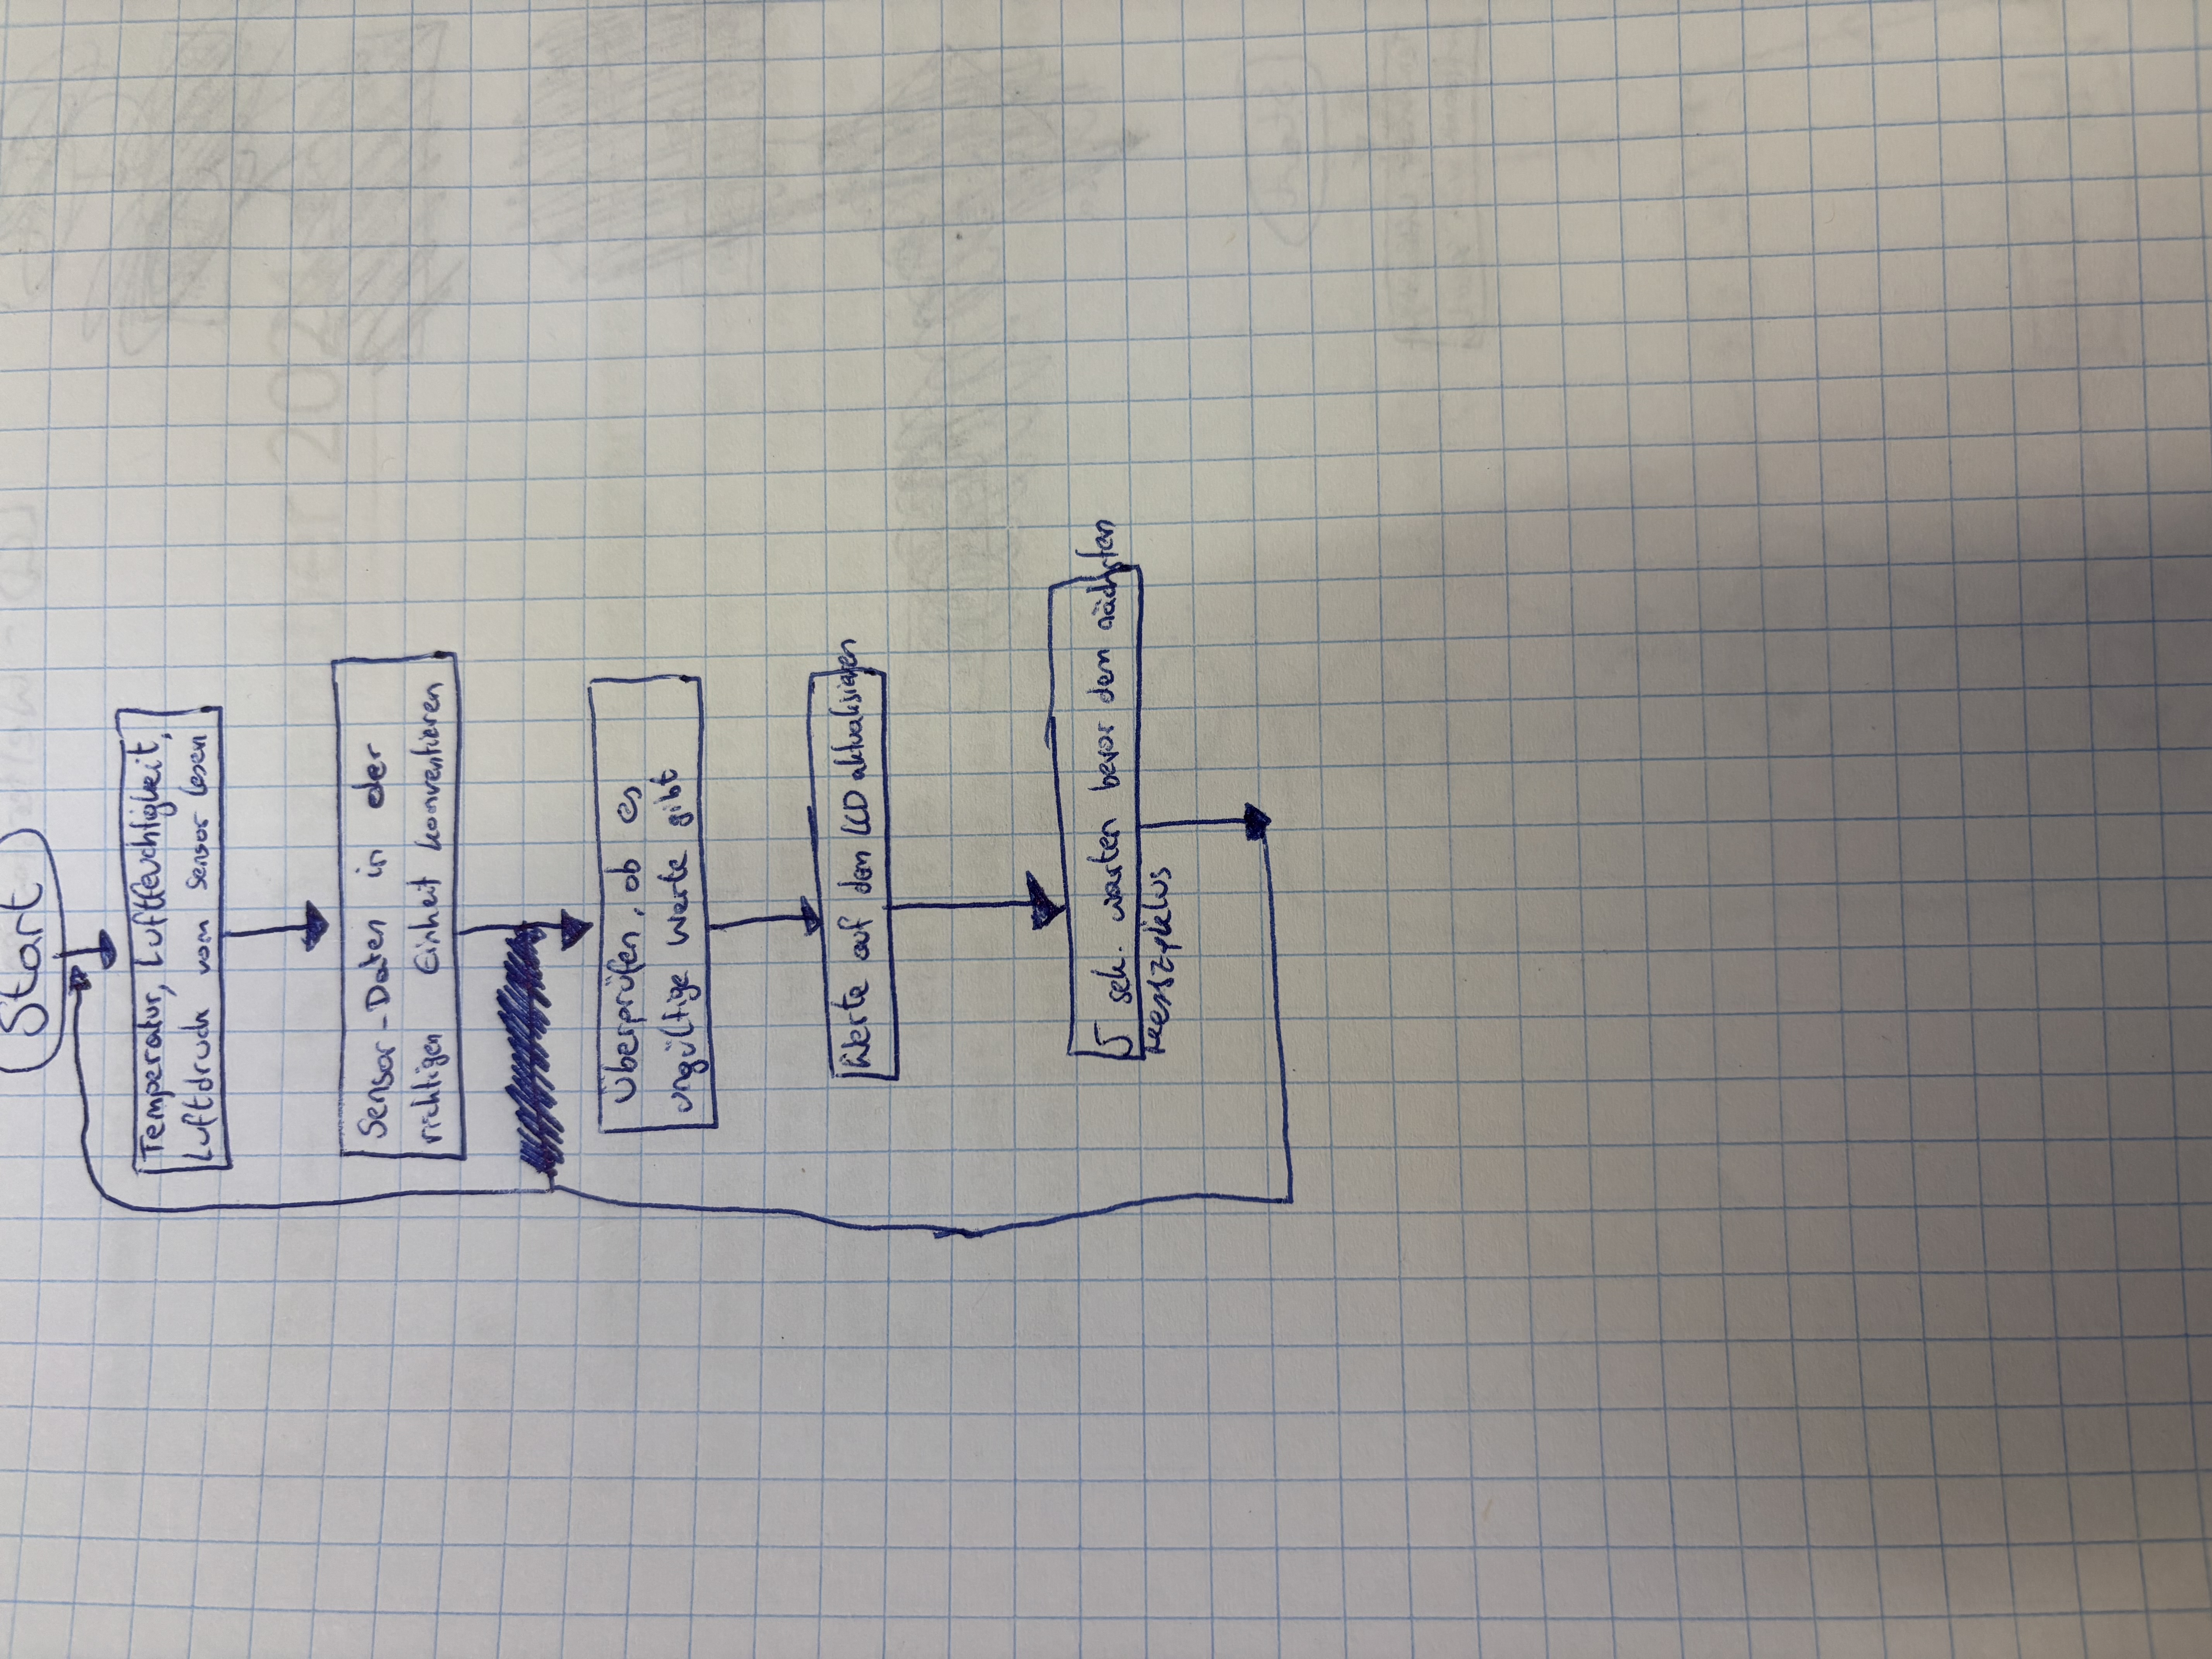 Start
Temperatur, Luftfeuchtigkeit,
Luftdruck vom Sensor lesen
Sensor-Daten in der
richtigen Einheit konventieren
Überprüfen, ob es
ungültige Werte gibt
Werte auf dem LCD aktualisieren
5 sek. warten bevor dem nächsten
Messzyklus